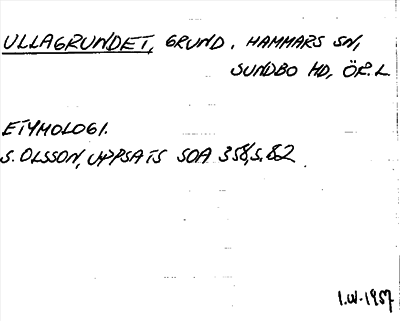 ULLAGRUNDET, GRUND. HAMMARS SN,
SUNDBO HD, ÖR. L.
ETYMOLOGI.
S. OLSSON, UPPSATS SOA 358, S. 82
1.IV.1957